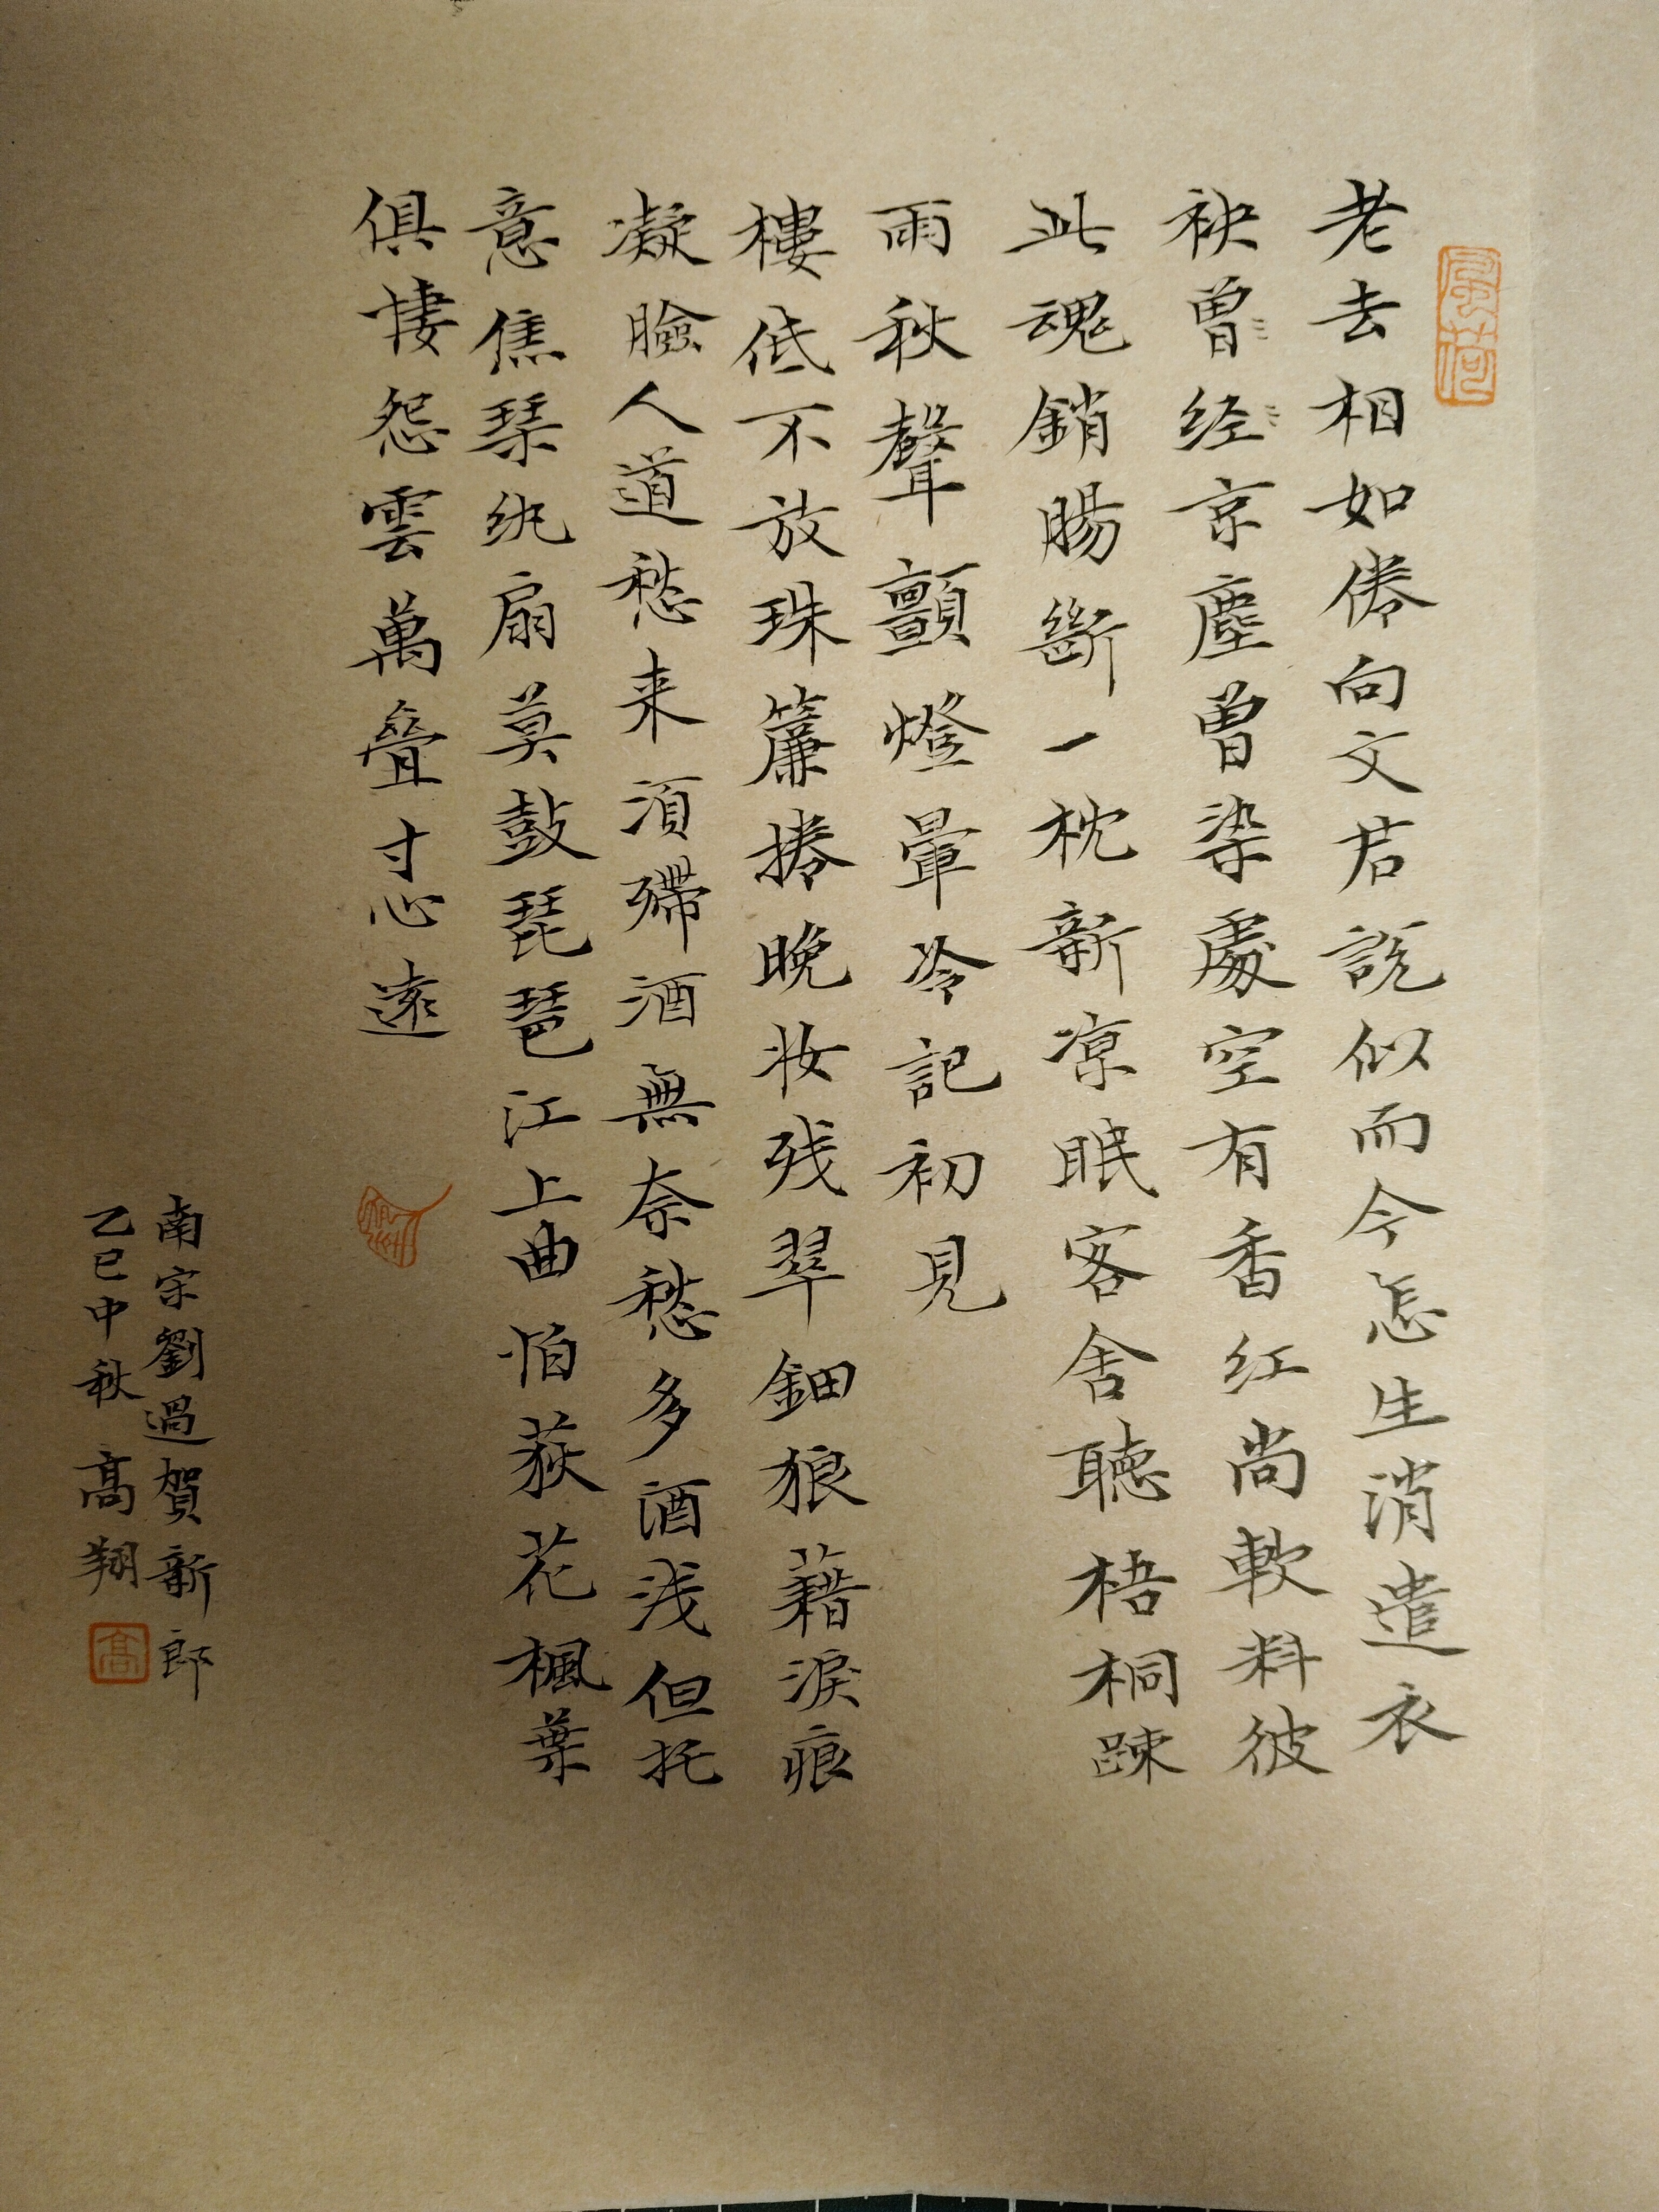 老去相如倦向文君説似而今怎生消遣衣
袂曽経京塵曽染處空有香红尚軟料彼
此魂銷腸斷一枕新凉眠客舍聽梧桐疎
雨秋聲顫燈暈冷記初見
樓低不放珠簾捲晚妆残翠鈿狼藉淚痕
凝臉人道愁来須殢酒無奈愁多酒浅但托
意焦琴纨扇莫鼓琵琶江上曲怕荻花楓葉
俱悽怨雲萬疊寸心遠
南宋劉過賀新郎
乙巳中秋 高翔
高